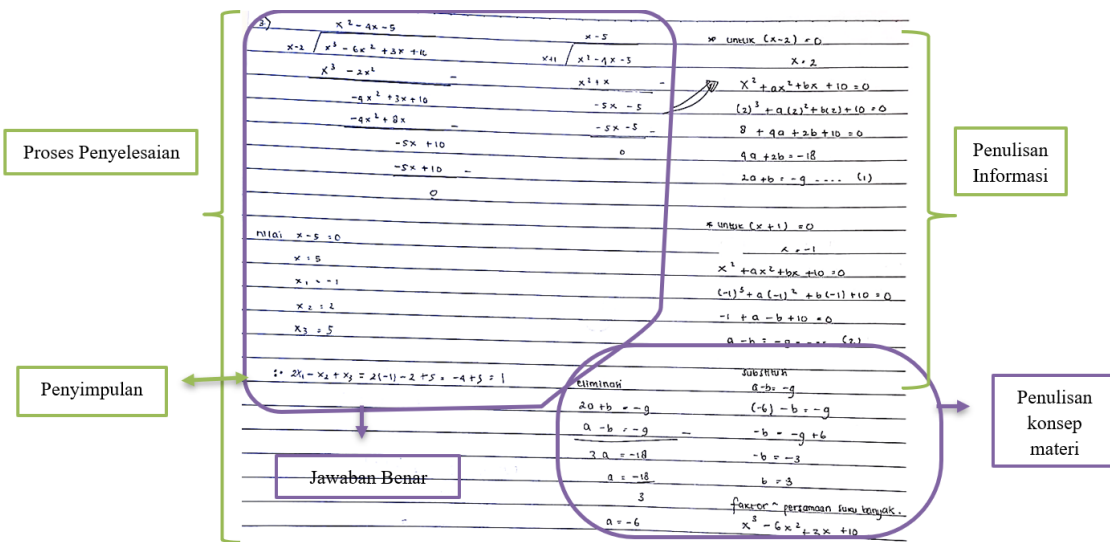 Proses Penyelesaian
Penyimpulan
Jawaban Benar
Penulisan
Informasi
Penulisan
konsep
materi
3)
x² - 4x - 5
x-2 / x³ - 6x² + 3x + 10
x³ - 2x² -
-4x² + 3x + 10
-4x² + 8x -
-5x + 10
-5x + 10 -
0
x - 5
x+1 / x² - 4x - 5
x² + x -
-5x - 5
-5x - 5 -
0
nilai x - 5 = 0
x = 5
x₁ = -1
x₂ = 2
x₃ = 5
∴ 2x₁ - x₂ + x₃ = 2(-1) - 2 + 5 = -4 + 5 = 1
* untuk (x-2) = 0
x = 2
x³ + ax² + bx + 10 = 0
(2)³ + a(2)² + b(2) + 10 = 0
8 + 4a + 2b + 10 = 0
4a + 2b = -18
2a + b = -9 .... (1)
* untuk (x+1) = 0
x = -1
x³ + ax² + bx + 10 = 0
(-1)³ + a(-1)² + b(-1) + 10 = 0
-1 + a - b + 10 = 0
a - b = -9 .... (2)
Eliminasi
2a + b = -9
a - b = -9 -
3a = -18
a = -18
3
a = -6
Substitusi
a - b = -9
(-6) - b = -9
-b = -9 + 6
-b = -3
b = 3
faktor ~ persamaan suku banyak.
x³ - 6x² + 3x + 10